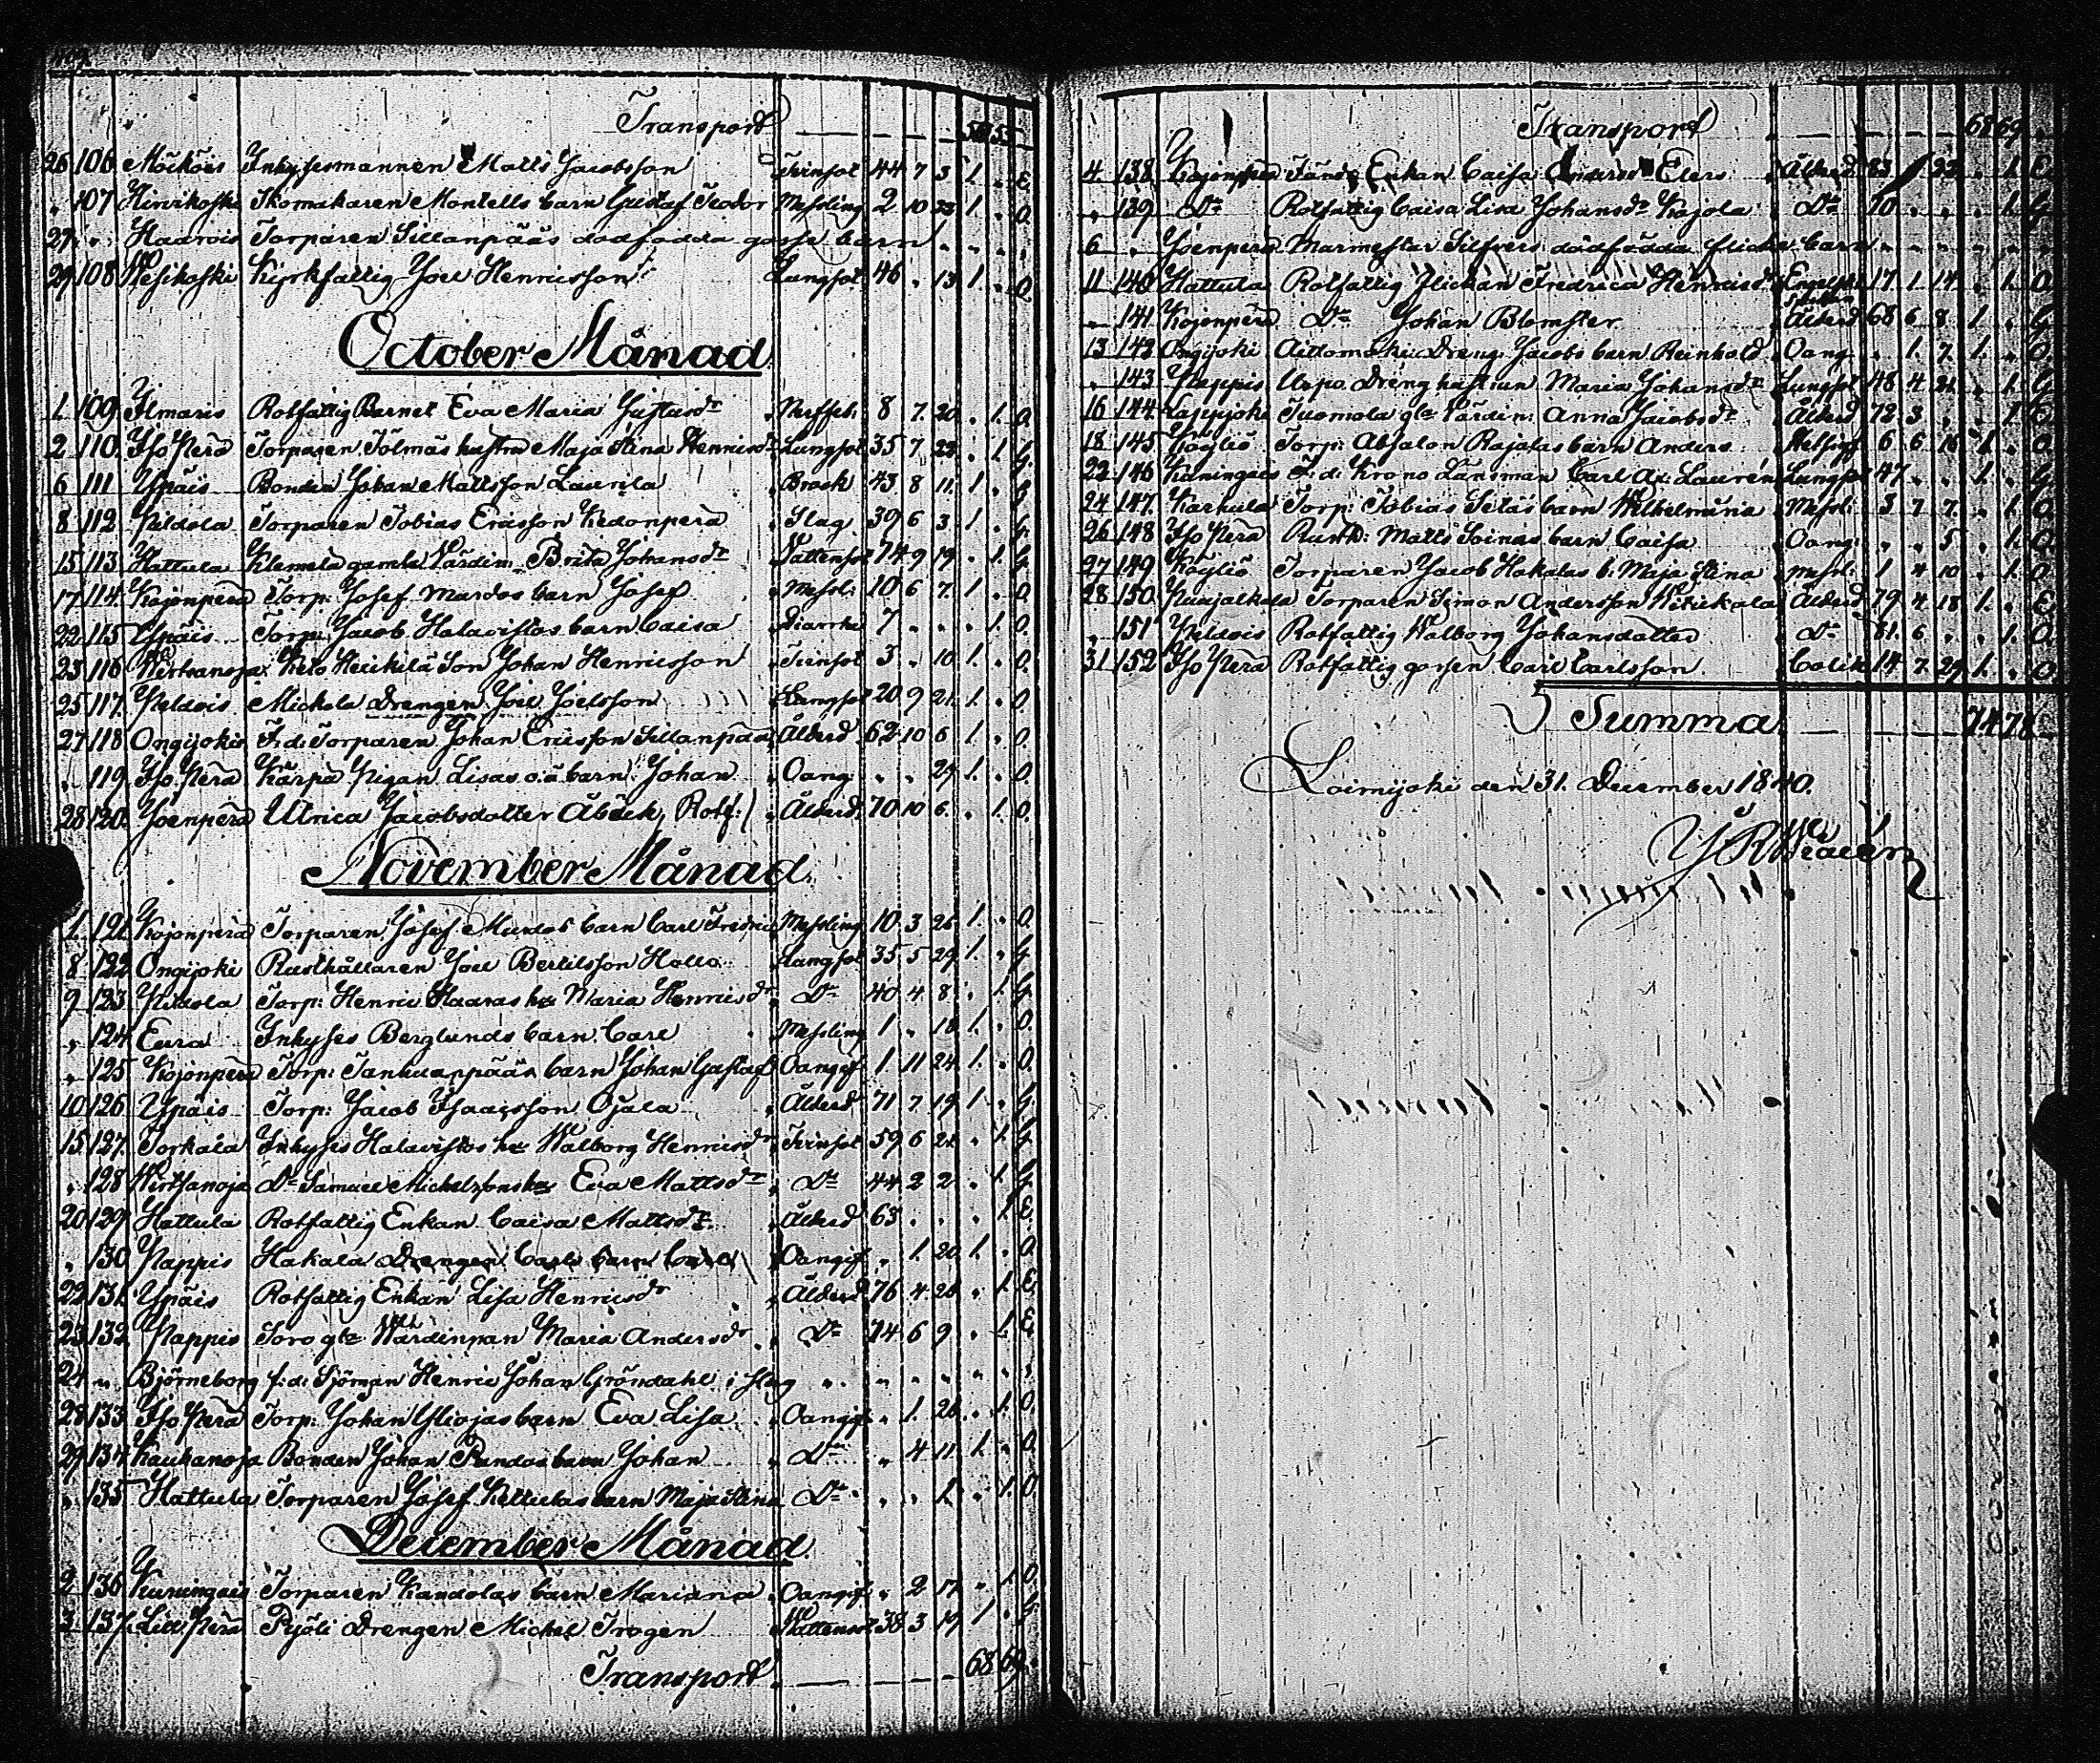 Transport — — — 50 55
26 106 Mököis Inhysesmannen Matts Jacobsson Tvinsot 44 7 3 1 „ E
„ 107 Hirvikoski Skomakaren Montells barn Gustaf Teodor Messling 2 10 23 1. „ O.
27 „ Haarois Torparen Sillanpääs dödfödda gosse barn „ „ „
29 108 Wesikoski Kyrkfattig Joel Henricsson Lungsot 46 „ 13 1. „ O
October Månad
1. 109 Ilmaris Rotfattig Barnet Eva Maria Gustasdr Nerffeb. 8 7. 20 „ 1. O.
2 110. Iso Perä Torparen Tölmäs hustru Maja Stina Henricsdr Lungsot 35 7 22 „ 1. G.
6 111 Ypäis Bonden Johan Mattsson Laurila Brock 43 8 11. 1. „ G.
8 112 Peldola Torparen Tobias Ericsson Kedonperä Slag 39 6 3 1. „ G.
15 113 Hattula Klemelä gamle Värdin. Brita Johansdr Vattensot 74 9 19 „ 1. G.
17 114. Kojonperä Torp: Josef Murdos barn Josef Messl: 10 6 7. 1. „ O.
22 115 Ypäis Torp: Jacob Halavistos barn Caisa Diarrhe 7 „ „ „ 1. O.
23 116 Wirtsanoja Kelo Heickilä Son Johan Henricsson Tvinsot 3 „ 10 1. „ O.
25 117. Peldois Mickola Drengen Joel Joelsson Lungsot 20 9 21. 1. „ O
27 118 Ongijokis F.d. Torparen Johan Ericsson Sillanpää Ålderd. 62 10 6 1. „ O.
„ 119 Iso Perä Kärpä Pigan Lisas o.ä. barn Johan Oang. „ „ 29 1. „ O.
28 120. Joenperä Ulrica Jacobsdotter Åbäck, Rotf: Ålderd. 70 10 6. „ 1. O.
November Månad.
1. 121 Kojonperä Torparen Josef Murdos barn Carl Fredric Messling 10 3 26 1. „ O.
8 122 Ongijoki Rusthållaren Joel Bertilsson Hollo Lungsot 35 5 29 1. „ G.
9 123 Peldola Torp: Henric Haaras hu Maria Henricsdr Do 40 4 8 „ 1. G.
„ 124 Eura Inhyses Berglunds barn Carl Messling 1 „ 18 1. „ O.
„ 125 Kojonperä Torp: Tanhuanpään barn Johan Gustaf Oangif 1 11 24 1. „ O.
10 126 Ypäis Torp: Jacob Isaacsson Ojala Ålderd 71 7 19 1. „ G.
15 127. Torkala Inhyses Halavistos hu Walborg Henricsdr Tvinsot 59 6 21 „ 1. G.
„ 128 Wirtsanoja Do Samuel Michelssons hu Eva Mattsdr Do 44 2 2 „ 1. G.
20 129 Hattula Rotfattig Enkan Caisa Mattsdr Ålderd 63 „ „ „ 1. E.
„ 130 Pappis Hakala Drengen Carls barn Carl Oangif „ 1. 20 1. „ O.
22 131. Ypäis Rotfattig Enkan Lisa Henricsdr Ålderd 76 4 28 „ 1. E.
23 132. Pappis Soro gle Wärdinnan Maria Andersdr Do 74 6 9 „ 1. E.
24 „ Björneborg f.d. Sjöman Henric Johan Gröndahl i slag „ „ „ „
28 133. Iso Perä Torp: Johan Yliojas barn Eva Lisa Oangif „ 1. 26 „ 1. O.
29 134 Kauhanoja Bonden Johan Pundas barn Johan Do „ 4 11 1. „ O.
„ 135 Hattula Torparen Josef Kettulas barn Maja Stina Do „ „ 1. „ 1. O.
December Månad.
2 136 Kuningais Torparen Kandolas barn Mariana Oangif „ 2 17 „ 1. O.
3 137. Lill Perä Pijöli Drengen Michel Trogen Wattensot 38 3 19 1. „ G.
Transport — — — 68 69
Transport — — — 68 69
4 138 Kojonperä Enkan Caisa Elers Ålderd 83 1 22 „ 1. E.
„ 139 Do Rotfattig Caisa Lisa Johansdr Kajola Do 70 „ „ „ 1. G.
6 „ Joenperä Murmestar Silfvers dödfödda flicke barn „ „ „
11 140 Hattula Rotfattig Flickan Fredrica Henricsdr Engelska sjukan 17 1. 14 „ 1. O.
„ 141. Kojonperä Do Johan Blomster Ålderd 68 6 8 1. „ G.
13 142 Ongijoki Aittomäki Dreng. Jacobs barn Reinhold Oang. „ 1. 7. 1. „ O.
„ 143 Pappis Uspo Dreng hustrun Maria Johansdr Lungsot 48 4 21 „ 1. G.
16 144 Lappijoki Tuomola gle Värdin: Anna Jacobsdr Ålderd 72 3 „ „ 1. E.
18 145 Köyliö Torp: Absalon Rajalas barn Anders 6 6 16 1. „ O.
22 146 Kuningais F.d. Krono Länsman Carl Ax: Laurén Lungsot 47 „ „ 1. „ G.
24 147. Karhula Torp: Tobias Setäs barn Wilhelmina Messl: 3 7 7. „ 1. O.
26 148 Iso Perä Rusth: Matts Soinas barn Caisa Oang: „ „ 5 „ 1. O.
27 149 Köyliö Torparen Jacob Hakalas b. Maja Stina Messl: 1 4 10 „ 1. O.
28 150. Torparen Simon Andersson Witickala Ålderd 79 4 18 1. „ E.
„ 151 Peldois Rotfattig Walborg Johansdotter Do 81. 6 „ „ 1. O.
31 152 Iso Perä Rotfattig gossen Carl Carlsson Colik 14 7. 29 1. „ O
Summa — — — 74 78
Loimijoki den 31. December 1840.